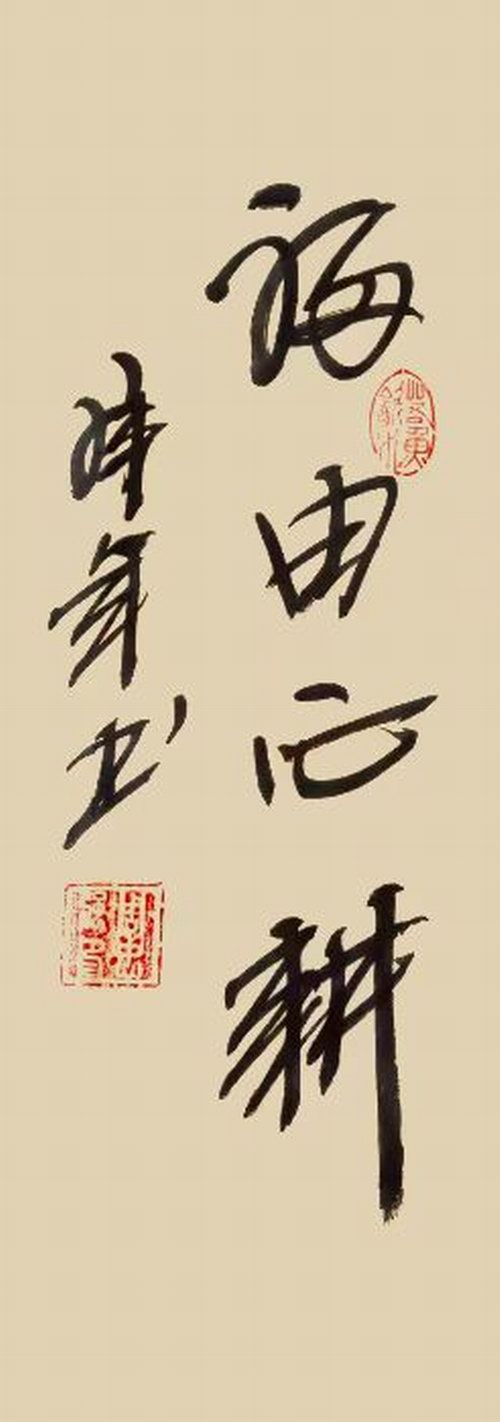 福由心耕
年书